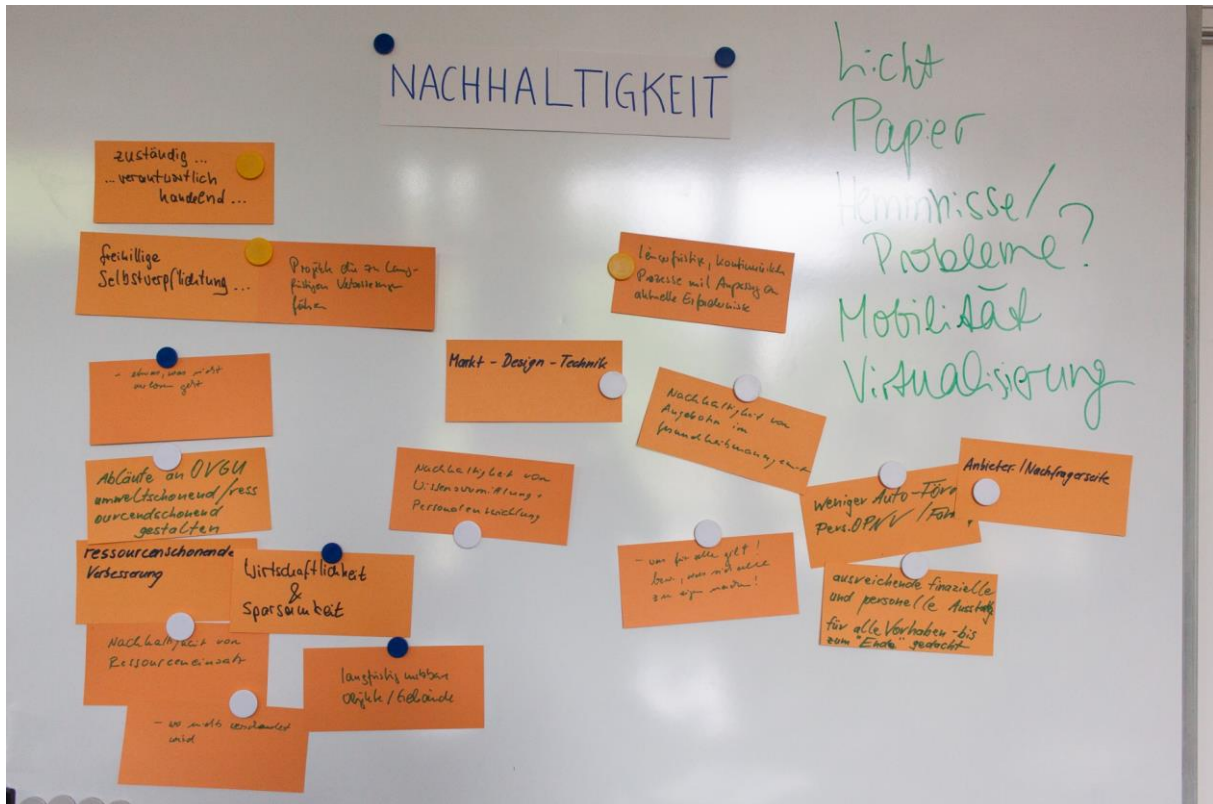 NACHHALTIGKEIT
Licht
Papier
Hemmnisse/
Probleme?
Mobilität
Virtualisierung
zuständig ...
... verantwortlich
handelnd ...
freiwillige
Selbstverpflichtung ...
Projekte die zu lang-
fristigen Verbesserungen
führen
längerfristige, kontinuierliche
Prozesse mit Anpassung an
aktuelle Erfordernisse
- etwas, was nicht
verloren geht
Markt - Design - Technik
Nachhaltigkeit von
Angeboten im
Gesundheitsmanagement
Abläufe an OVGU
umweltschonend/ress
ourcendschonend
gestalten
Nachhaltigkeit von
Wissensvermittlung,
Personalentwicklung
weniger Auto-
Pers. ÖPNV /
Anbieter-/Nachfragerseite
ressourcenschonende
Verbesserung
Wirtschaftlichkeit
&
Sparsamkeit
- was für alle gilt!
zu eigen machen!
ausreichende finazielle
und personelle Ausstattg
für alle Vorhaben - bis
zum "Ende" gedacht
Nachhaltigkeit von
Ressourceneinsatz
langfristig nutzbare
Objekte / Gebäude
- wo nichts verschwendet
wird